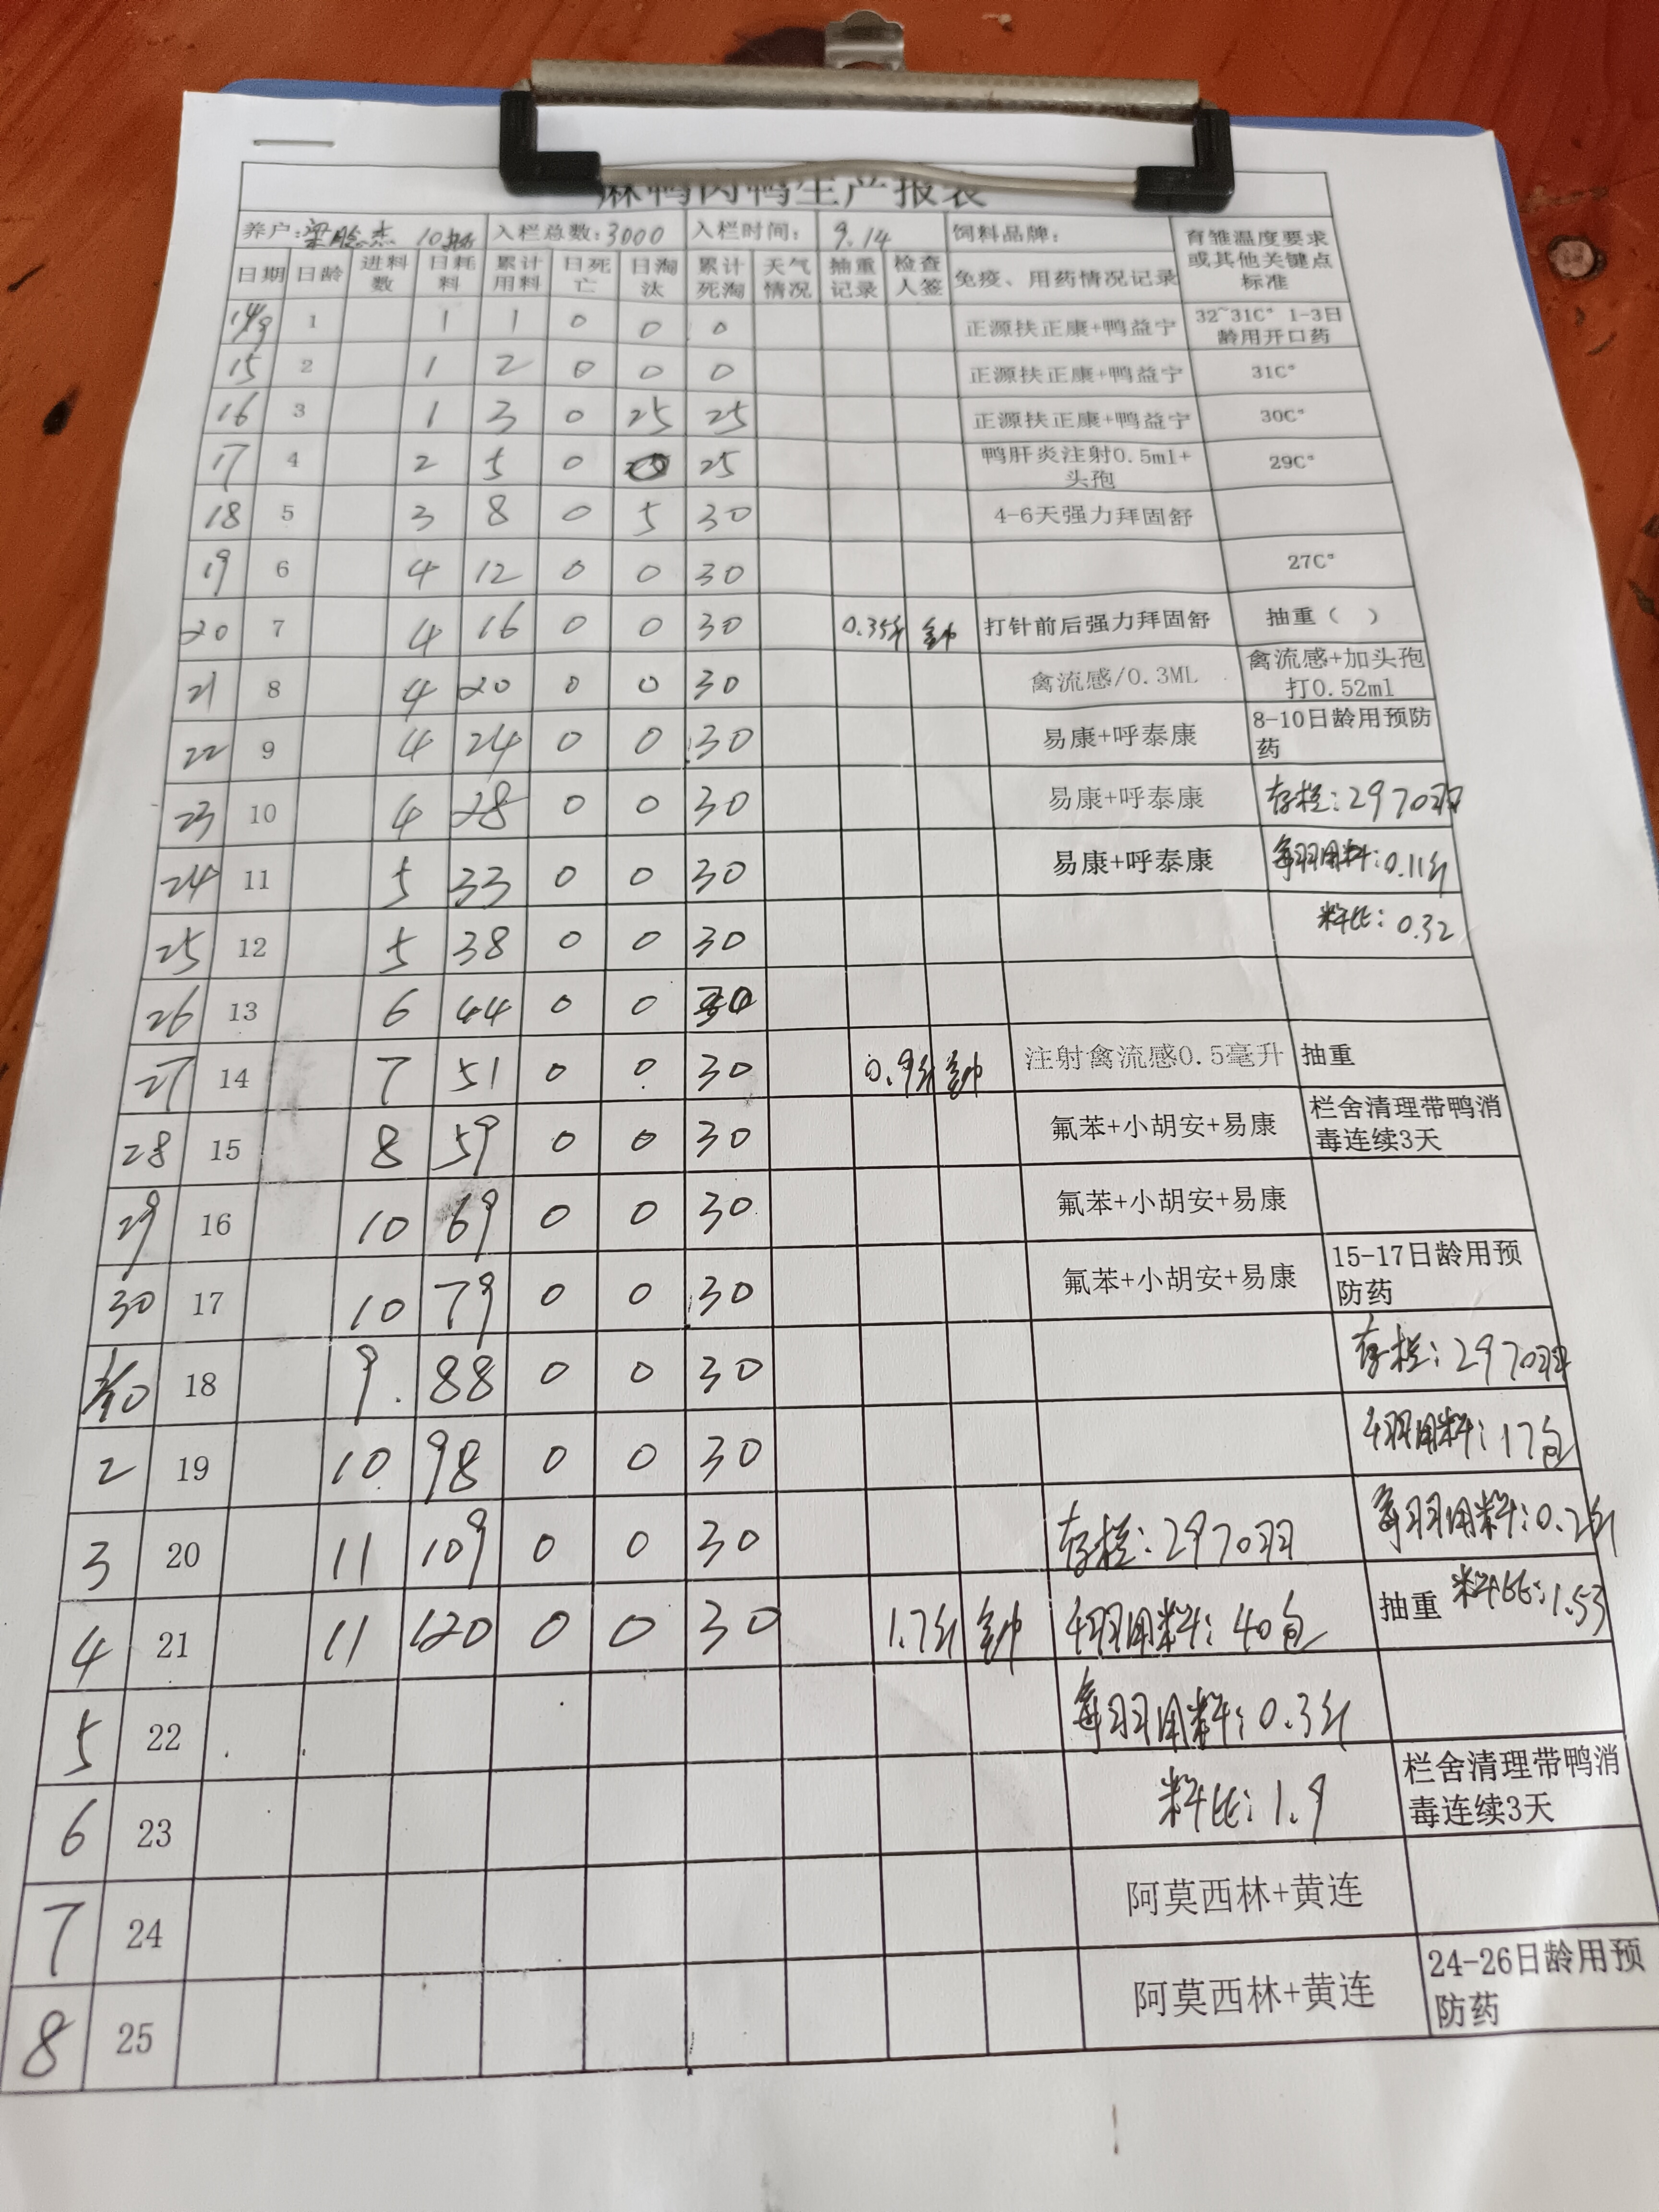 麻鸭肉鸭生产报表
养户: 梁 杰 10 入栏总数: 3000 入栏时间: 9.14 饲料品牌: 育雏温度要求或其他关键点标准
日期 日龄 进料数 日耗料 累计用料 日死亡 日淘汰 累计死淘 天气情况 抽重记录 检查人签 免疫、用药情况记录
14/9 1 1 1 0 0 0 正源扶正康+鸭益宁 32~31C° 1-3日龄用开口药
15 2 1 2 0 0 0 正源扶正康+鸭益宁 31C°
16 3 1 3 0 25 25 正源扶正康+鸭益宁 30C°
17 4 2 5 0 0 25 鸭肝炎注射0.5ml+头孢 29C°
18 5 3 8 0 5 30 4-6天强力拜固舒
19 6 4 12 0 0 30 27C°
20 7 4 16 0 0 30 0.35斤 打针前后强力拜固舒 抽重( )
21 8 4 20 0 0 30 禽流感/0.3ML 禽流感+加头孢打0.52ml
22 9 4 24 0 0 30 易康+呼泰康 8-10日龄用预防药
23 10 4 28 0 0 30 易康+呼泰康 存栏:2970羽
24 11 5 33 0 0 30 易康+呼泰康 每羽用料:0.11斤
25 12 5 38 0 0 30 料比:0.32
26 13 6 44 0 0 30
27 14 7 51 0 0 30 0.9斤 注射禽流感0.5毫升 抽重
28 15 8 59 0 0 30 氟苯+小胡安+易康 栏舍清理带鸭消毒连续3天
29 16 10 69 0 0 30 氟苯+小胡安+易康
30 17 10 79 0 0 30 氟苯+小胡安+易康 15-17日龄用预防药
1/10 18 9. 88 0 0 30 存栏:2970羽
2 19 10 98 0 0 30 千羽用料:17包
3 20 11 109 0 0 30 存栏:2970羽 每羽用料:0.2斤
4 21 11 120 0 0 30 1.7斤 千羽用料:40包 抽重 料比:1.53
5 22 每羽用料:0.3斤
6 23 料比:1.9 栏舍清理带鸭消毒连续3天
7 24 阿莫西林+黄连
8 25 阿莫西林+黄连 24-26日龄用预防药